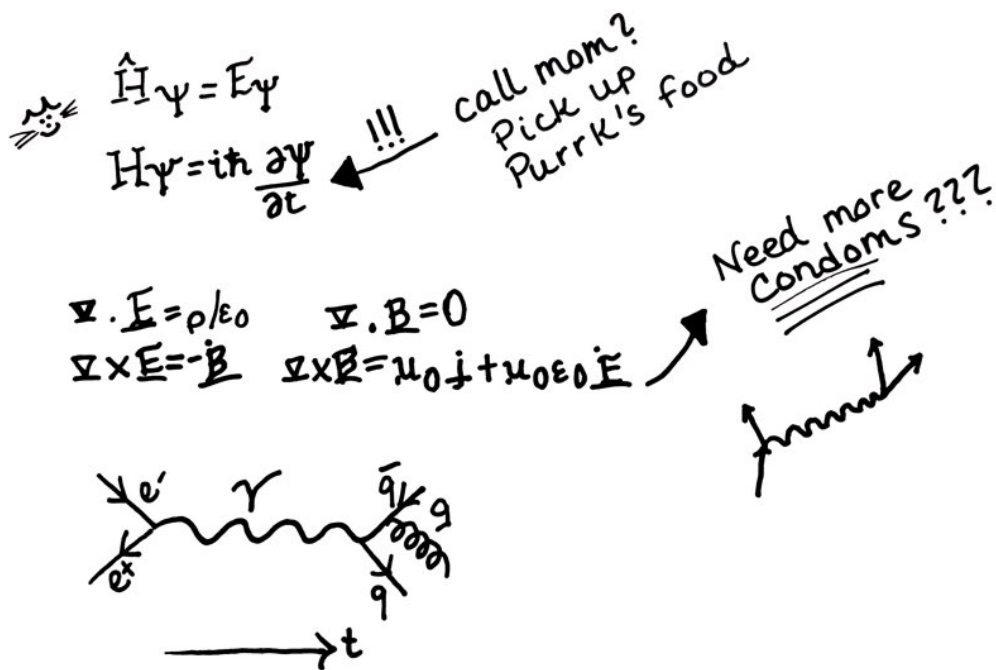 Ĥψ = Eψ
Hψ = iħ ∂ψ/∂t
!!!
call mom?
Pick up
Purrk's food
Need more
condoms???
∇ · E = ρ/ε0
∇ · B = 0
∇ × E = -Ḃ
∇ × B = μ0 j + μ0 ε0 Ė
e-
γ
q̄
g
e+
q
t